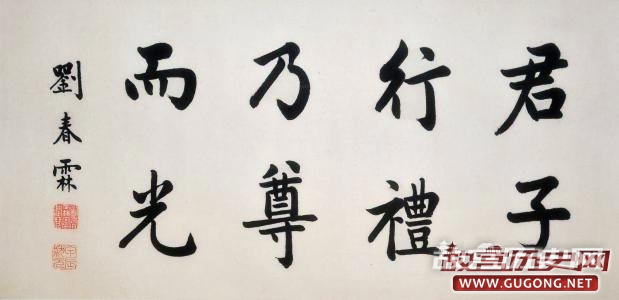 君子
行禮
乃尊
而光
劉春霖
故宫历史网
WWW.GUGONG.NET